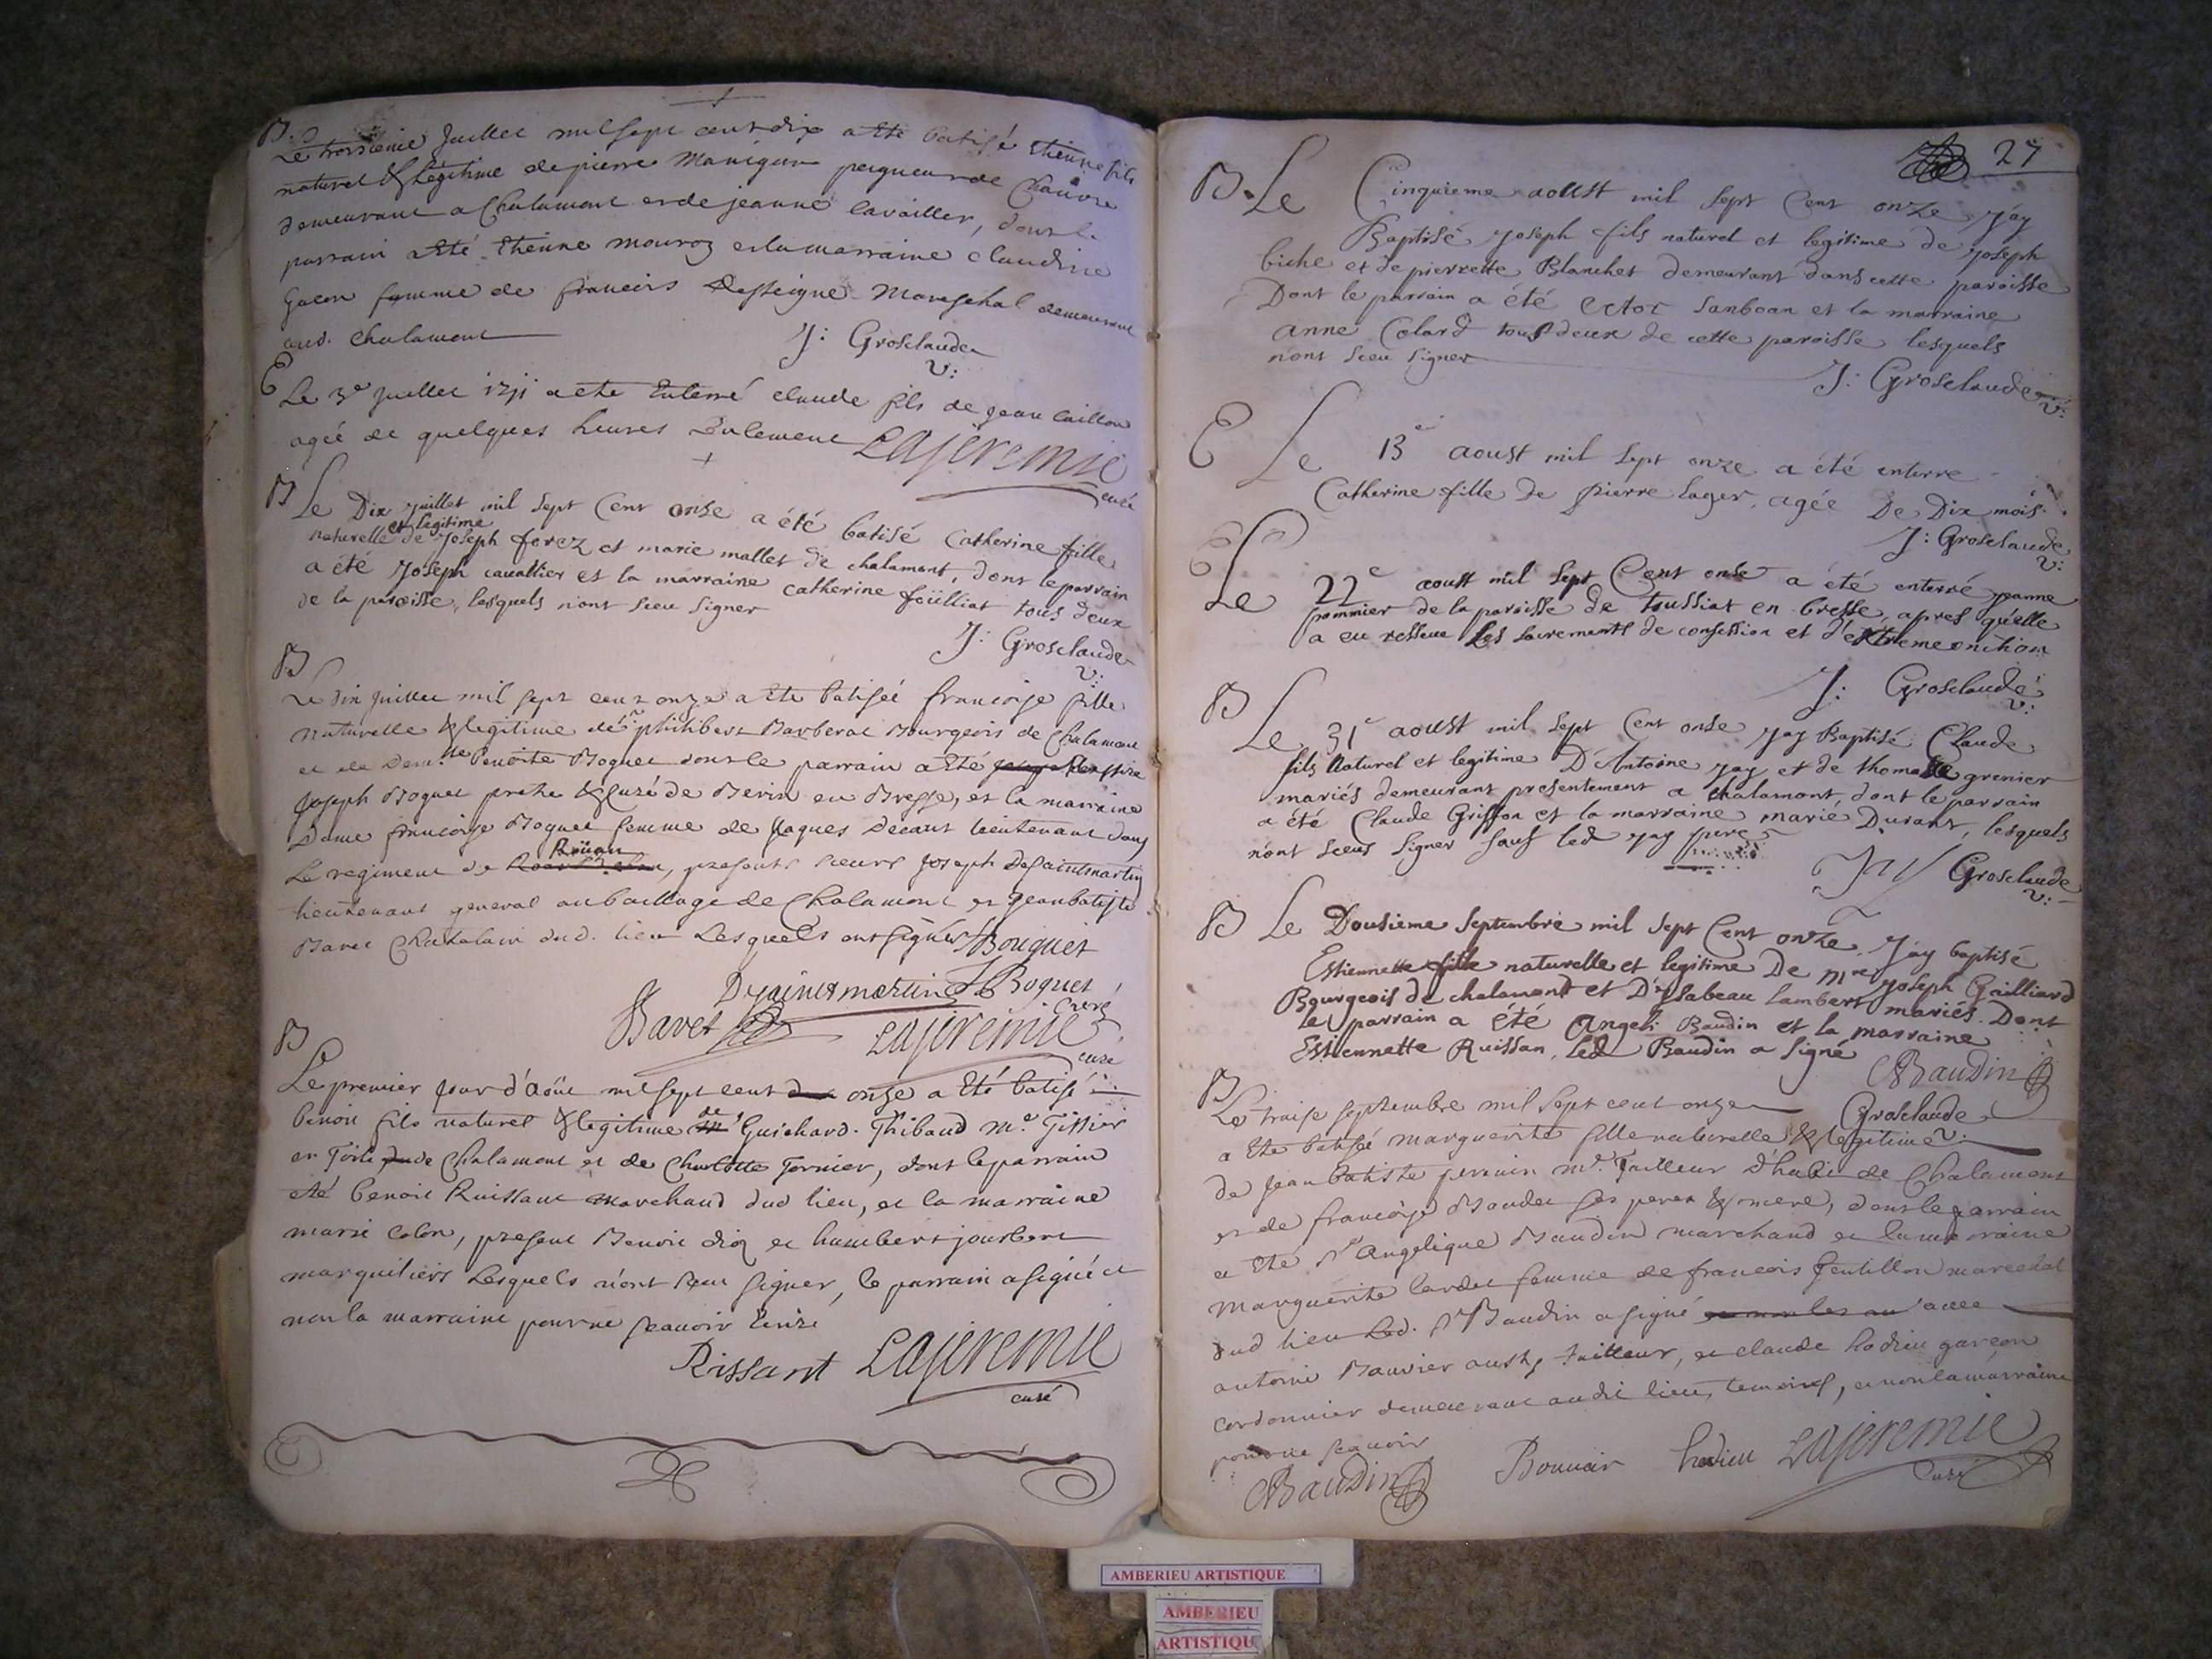 B. Le troisieme Juillet mil sept cent dix a été batisé Etienne fils
naturel & légitime de pierre Manigan peigneur de Chanvre
demeurant a Chalamont et de jeanne lavailler, dont le
parrain a été Etienne mouroz et la marraine claudine
femme de francois Desseigne Mareschal demeurant
aud. Chalamont
J: Grosclaude
v:
E Le 3e Juillet 1711 a ete Enterré claude fils de jean caillon
agée de quelques heures Sulement Lajeremie
curé
B Le Dix juillet mil sept Cent onse a été batisé Catherine fille
et legitime
naturelle de Joseph forez et marie mallet de chalamont, dont le parrain
a été Joseph cauattier et la marraine Catherine foüilliat tous deux
de la paroisse, lesquels n'ont sceu signer
J: Grosclaude
v:
B
Le dix Juillet mil sept cent onze a été batisée francoise fille
naturelle & legitime de philibert Barberat Bourgeois de Chalamont
et de Dem.lle Benoite Boguet dont le parrain a été
Joseph Boguet prétre & curé de Bevin en Bresse, et la marraine
Dame francoise Boguet femme de Jaques Decant lieutenant dans
Roüan
Le regiment de presents sieurs Joseph Desaintmartin
lieutenant general au bailliage de Chalamont et Jean batiste
Bavet Chatelain dud. lieu Lesquels ont signés Bouguet
Desainctmartin Boguet
curé
Bavet Lajeremie
curé
B
Le premier jour d'aöut mil sept cent onze a été batisé
de
benoit fils naturel & legitime Guichard Thibaud me Tissier
en Toile de Chalamont et de Charlotte Tornier, dont le parrain
été benoit Ruissant marchand dud lieu, et la marraine
marie Colon, present Benoit et humbert jourbert
marguiliers Lesquels n'ont sceu signer, le parrain a signé et
non la marraine pour ne scavoir Ecrire
Rissant Lajeremie
curé
27
B. Le Cinquieme aoust mil sept Cent onze J'ay
Baptisé Joseph fils naturel et legitime de Joseph
biche et de pierrette Blanchet demeurant dans cette paroisse
Dont le parrain a été ector Sanboan et la marraine
anne Colard tous deux de cette paroisse lesquels
n'ont sceu signer
J: Grosclaude
v:
E Le 13e aoust mil sept onze a été enterre
Catherine fille de pierre lager, agée De Dix mois.
J: Grosclaude
v:
E Le 22e aoust mil sept Cent onse a été enterré jeanne
pommier de la paroisse de toussiat en bresse, apres qu'elle
a eu resseue Les sacrements de confession et d'extreme onction
J: Grosclaude
v:
B Le 31e aoust mil sept Cent onse J'ay Baptisé Claude
fils Naturel et legitime D'Antoine Jay et de thomasse grenier
mariés demeurant presentement a chalamont, dont le parrain
a été Claude Griffon et la marraine marie Durant, lesquels
n'ont sceus signer sauf led Jay pere
Jay Grosclaude
v:
B Le Dousieme Septembre mil sept Cent onze J'ay baptisé
Estiennette fille naturelle et legitime De Mre Joseph Gailliard
Bourgeois de chalamont et Dlle Isabeau Lambert mariés. Dont
le parrain a été Angeli Baudin et la marraine
Estiennette Ruissan, led Baudin a signé
Baudin
Grosclaude
v:
B
Le traise septembre mil sept cent onze
a été batisée marguerite fille naturelle & legitime
de jean batiste perruin me Tailleur d'habit de Chalamont
et de francoise Baudet ses peres & mere, dont le parrain
a été Sr Angelique Baudin marchand et la marraine
Marguerite lardet femme de francois Gentillon marechal
dud lieu Led. Sr Baudin a signé avec
antoine Bouvier aussy tailleur, et claude hodieu garçon
cordonnier demeurant audit lieu, temoins, et non la marraine
pour ne scavoir
Baudin Bouuier hodieu Lajeremie
curé
AMBERIEU ARTISTIQUE
AMBERIEU
ARTISTIQU